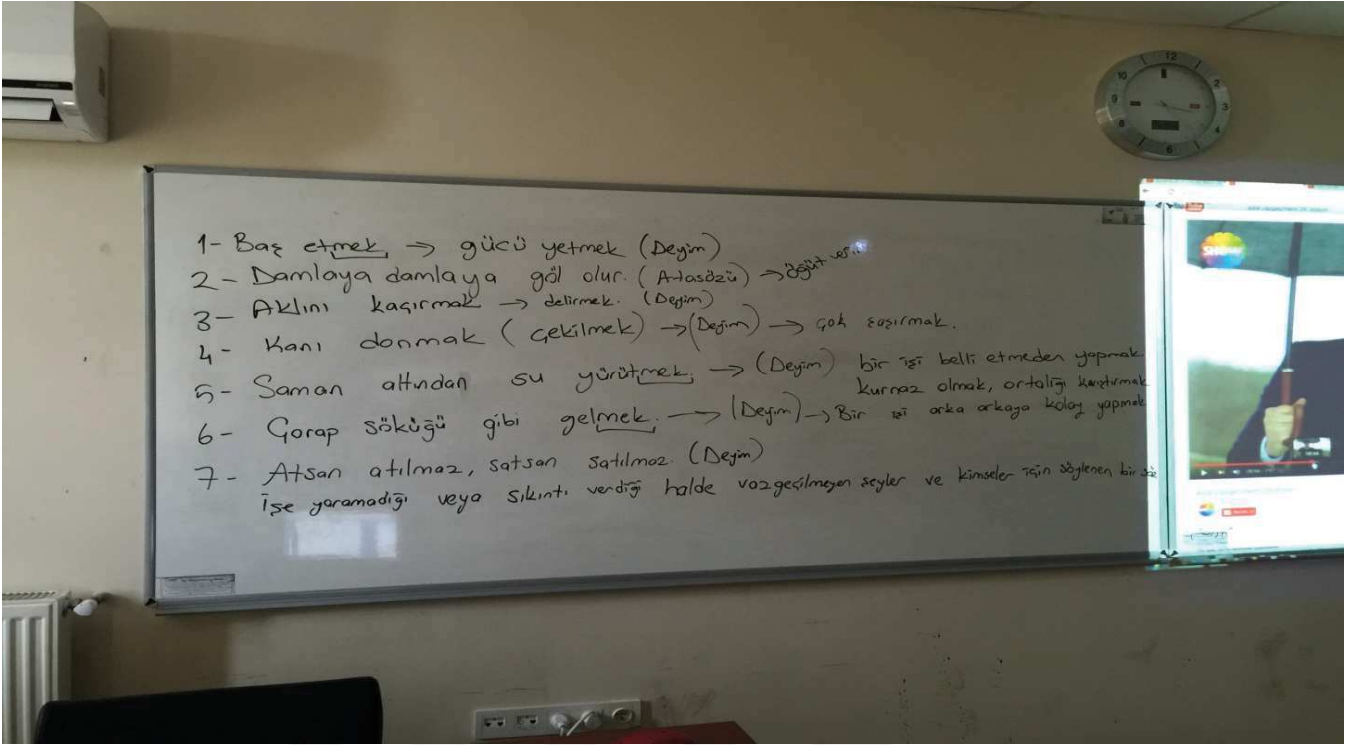 1- Baş etmek → gücü yetmek (Deyim)
2- Damlaya damlaya göl olur. (Atasözü) → öğüt
3- Aklını kaçırmak → delirmek. (Deyim)
4- Kanı donmak (çekilmek) → (Deyim) → çok şaşırmak.
5- Saman altından su yürütmek. → (Deyim) bir işi belli etmeden yapmak.
kurnaz olmak, ortalığı karıştırmak
6- Çorap söküğü gibi gelmek. → (Deyim) → Bir işi arka arkaya kolay yapmak
7- Atsan atılmaz, satsan satılmaz. (Deyim)
İşe yaramadığı veya sıkıntı verdiği halde vazgeçilmeyen şeyler ve kimseler için söylenen bir söz
12
2
3
4
6
8
9
10
SHOW